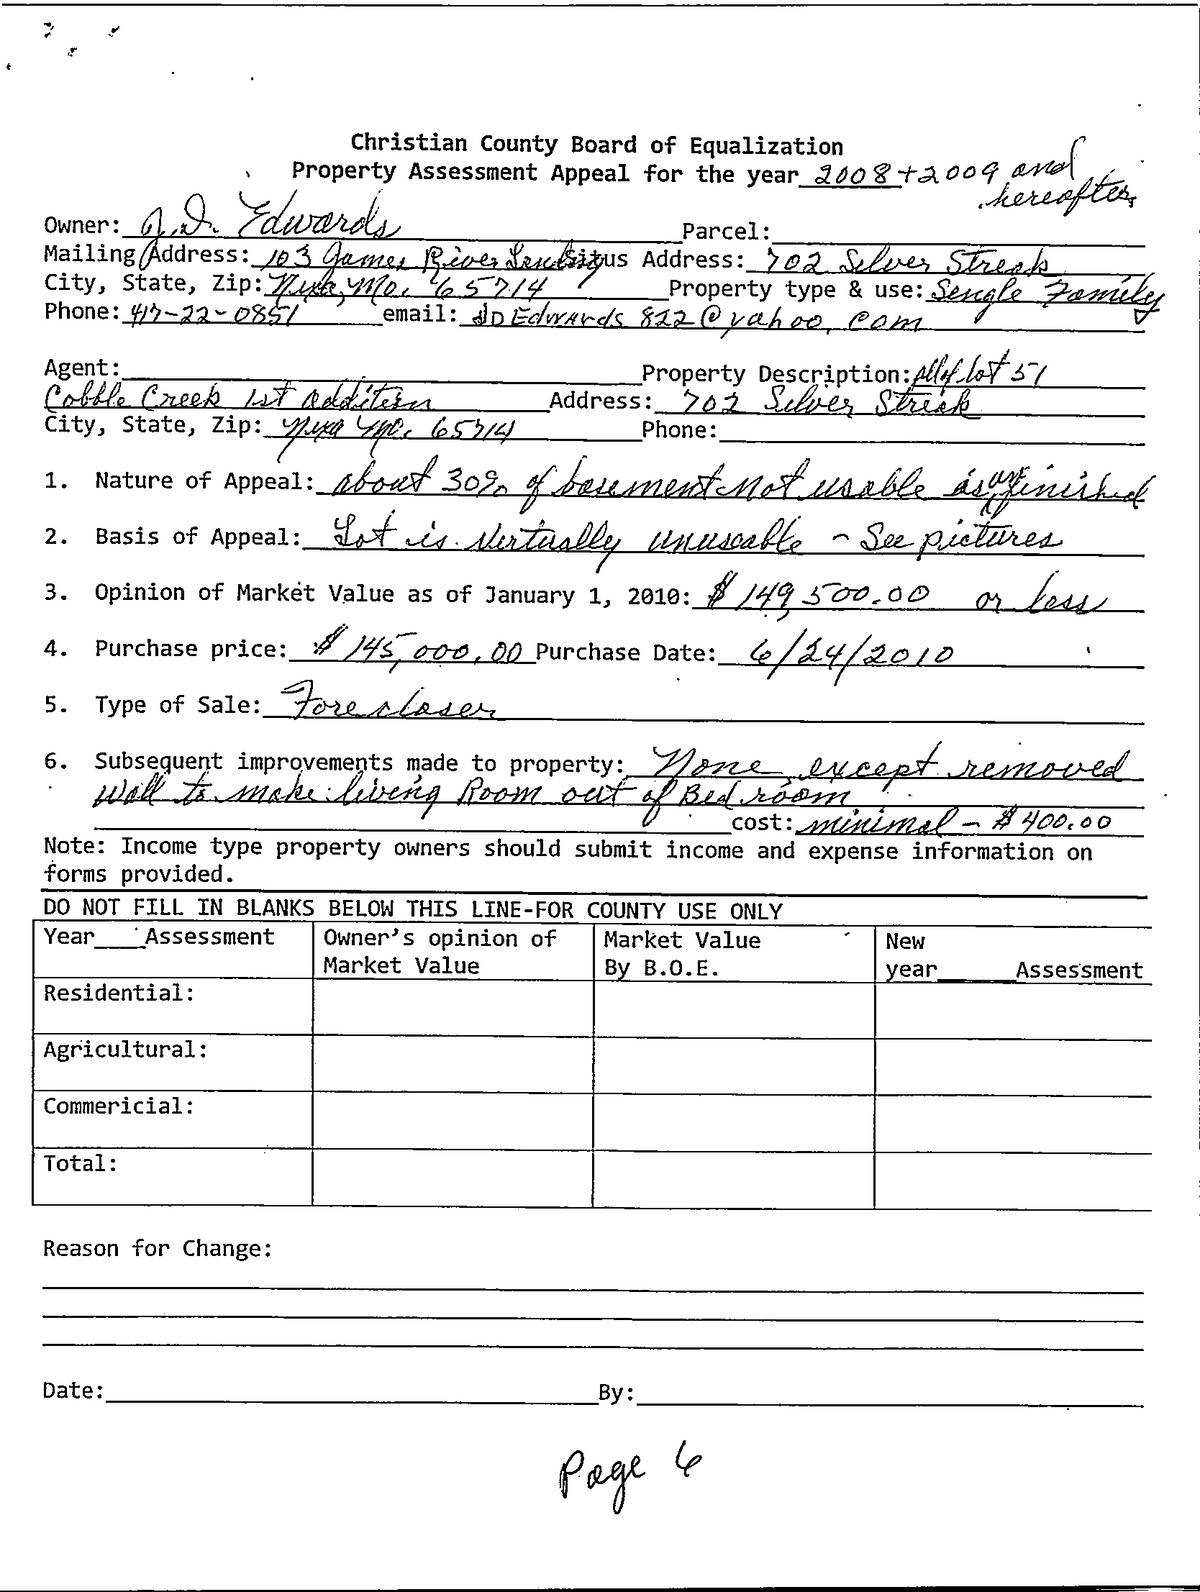 Christian County Board of Equalization
Property Assessment Appeal for the year 2008 + 2009 and
hereafter
Owner: J.D. Edwards Parcel:
Mailing Address: 103 James River Landing Situs Address: 702 Silver Streak
City, State, Zip: Nixa, Mo. 65714 Property type & use: Single Family
Phone: 417-22-0851 email: JDEdwards822@yahoo.com
Agent: Property Description: All of Lot 51
Cobble Creek 1st Addition Address: 702 Silver Streak
City, State, Zip: Nixa Mo. 65714 Phone:
1. Nature of Appeal: about 30% of basement not usable as finished
2. Basis of Appeal: Lot is virtually unuseable - See pictures
3. Opinion of Market Value as of January 1, 2010: $ 149,500.00 or less
4. Purchase price: $ 145,000.00 Purchase Date: 6/24/2010
5. Type of Sale: Forecloser
6. Subsequent improvements made to property: None except removed
wall to make living Room out of Bedroom
cost: minimal - $400.00
Note: Income type property owners should submit income and expense information on
forms provided.
DO NOT FILL IN BLANKS BELOW THIS LINE-FOR COUNTY USE ONLY
Year____Assessment Owner's opinion of Market Value By B.O.E. New
Market Value year______Assessment
Residential:
Agricultural:
Commericial:
Total:
Reason for Change:
Date: By:
Page 6